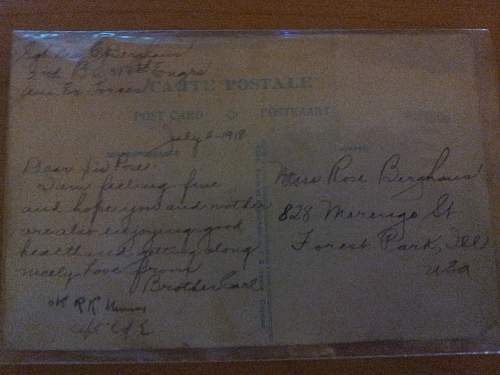 2nd Bn Engrs
Am Ex Forces
CARTE POSTALE
POST CARD POSTKAART
July 6-1918
Dear Sis Rose:
I am feeling fine
and hope you and mother
are also enjoying good
health and getting along
nicely. Love from
Brother Carl
OK R R
Capt C of E
Miss Rose Berghaus
828 Marengo St
Forest Park, Ill
USA